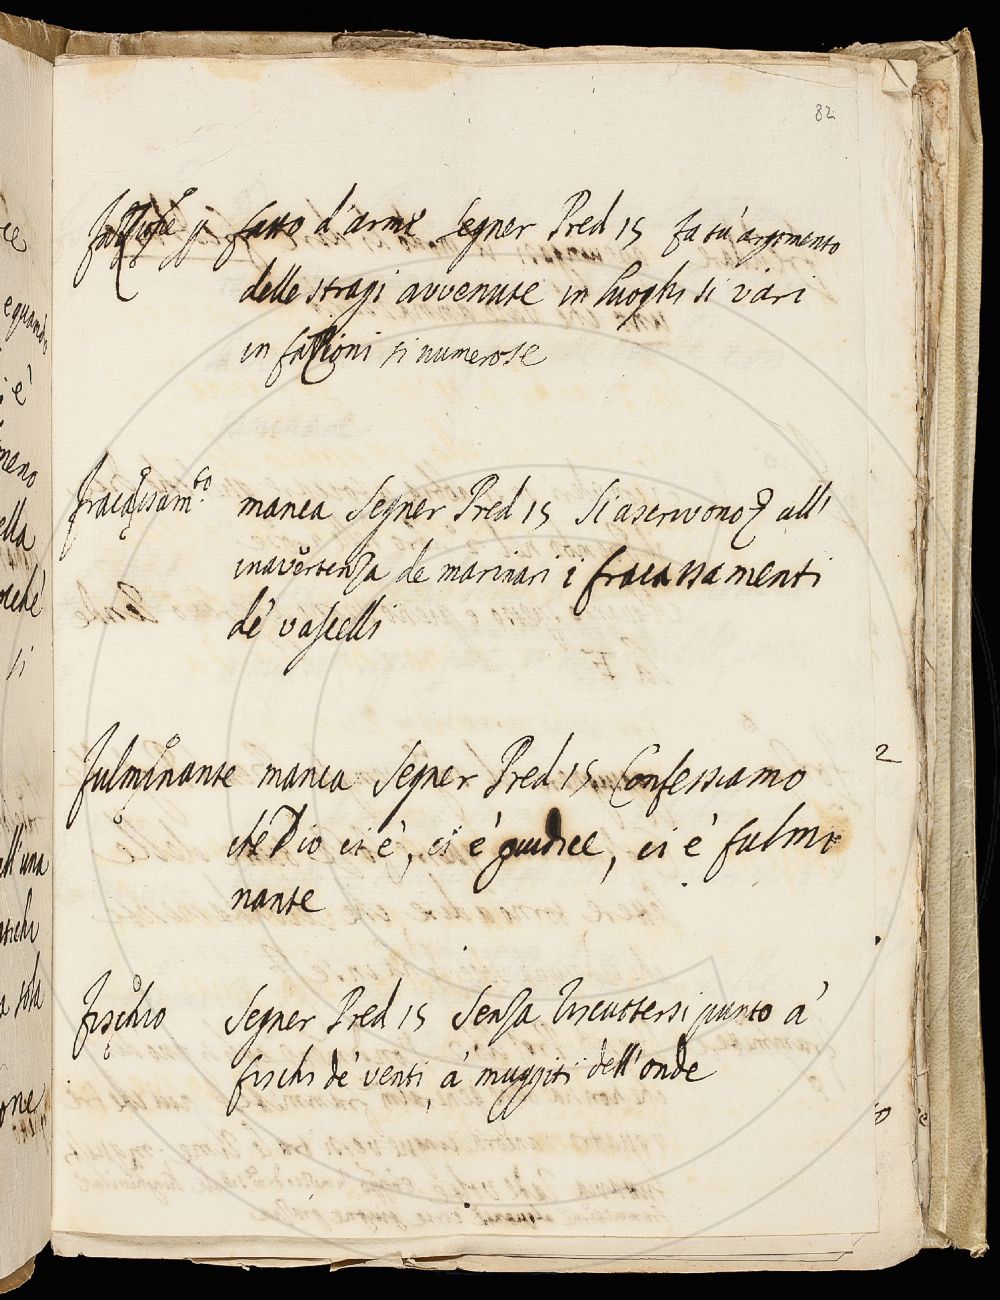 82
Fazzione p fatto d'arme Segner Pred 15 fa tu argomento
delle stragi avvenute in luoghi si vari
in fazzioni si numerose
fracassam.to manca Segner Pred 15 Si ascrivono all'
inavvertenza de marinari i fracassamenti
de' vascelli
fulminante manca Segner Pred 15 Confessiamo
che Dio ci è, ci è giudice, ci è fulmi
nante
fischio Segner Pred 15 Senza riscuotersi punto à
fischi de' venti, á muggiti dell'onde